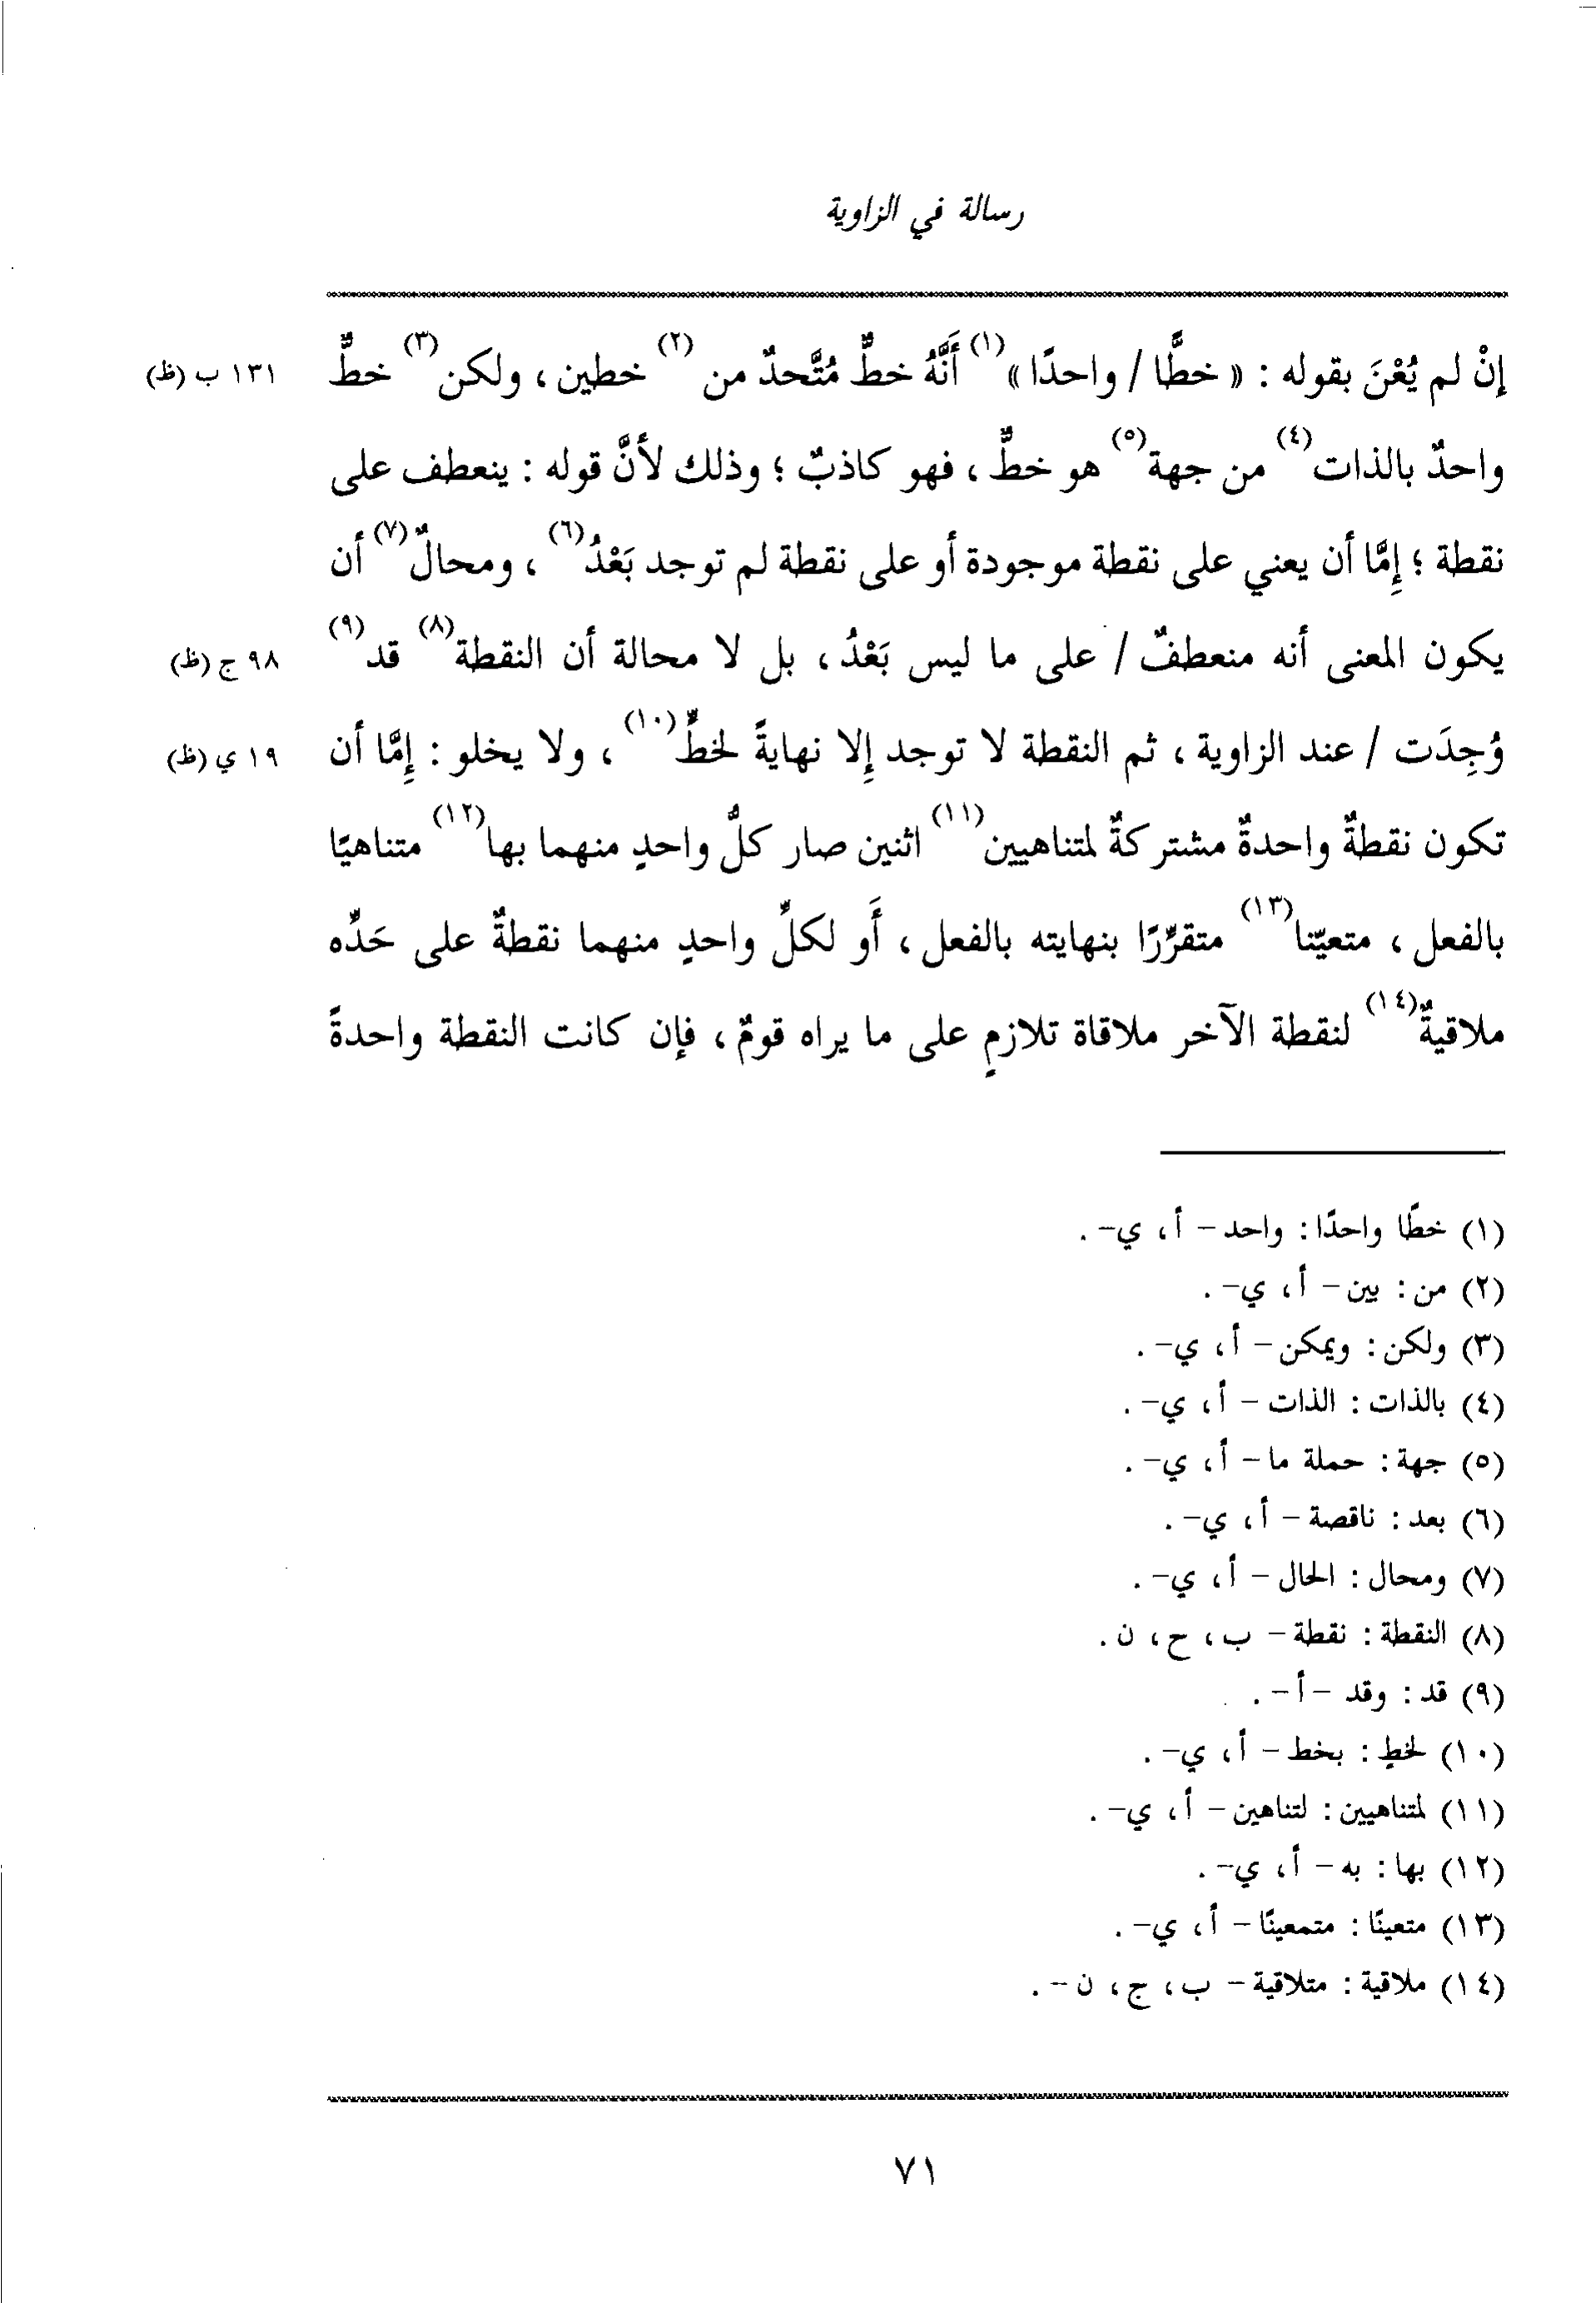 رسالة في الزاوية
إنْ لم يُعْنَ بقوله : « خطًّا / واحدًا »(١) أَنَّهُ خطٌّ مُتَّحدٌ من(٢) خطين ، ولكن(٣) خطٌّ ١٣١ ب (ظ)
واحدٌ بالذات(٤) من جهة(٥) هو خطٌّ ، فهو كاذبٌ ؛ وذلك لأنَّ قوله : ينعطف على
نقطة ؛ إمَّا أن يعني على نقطة موجودة أو على نقطة لم توجد بَعْدُ(٦) ، ومحالٌ(٧) أن
يكون المعنى أنه منعطفٌ / على ما ليس بَعْدُ ، بل لا محالة أن النقطة(٨) قد(٩) ٩٨ ج (ظ)
وُجِدَت / عند الزاوية ، ثم النقطة لا توجد إلا نهايةً لخطٍّ(١٠) ، ولا يخلو : إمَّا أن ١٩ ي (ظ)
تكون نقطةٌ واحدةٌ مشتركةٌ لمتناهيين(١١) اثنين صار كلُّ واحدٍ منهما بها(١٢) متناهيًا
بالفعل ، متعيّنا(١٣) متقرِّرًا بنهايته بالفعل ، أَو لكلِّ واحدٍ منهما نقطةٌ على حَدِّه
ملاقيةٌ(١٤) لنقطة الآخر ملاقاة تلازمٍ على ما يراه قومٌ ، فإن كانت النقطة واحدةً
(١) خطًا واحدًا : واحد – أ ، ي– .
(٢) من : بين – أ ، ي– .
(٣) ولكن : ويمكن – أ ، ي– .
(٤) بالذات : الذات – أ ، ي– .
(٥) جهة : حملة ما – أ ، ي– .
(٦) بعد : ناقصة – أ ، ي– .
(٧) ومحال : الحال – أ ، ي– .
(٨) النقطة : نقطة – ب ، ح ، ن .
(٩) قد : وقد – أ – .
(١٠) لخطٍ : بخط – أ ، ي– .
(١١) لمتناهيين : لتناهين – أ ، ي– .
(١٢) بها : به – أ ، ي– .
(١٣) متعينًا : متمعينًا – أ ، ي– .
(١٤) ملاقية : متلاقية – ب ، ج ، ن – .
٧١